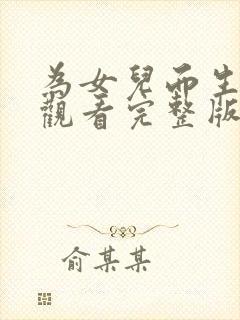 為女兒而生
觀看完整版
俞某某